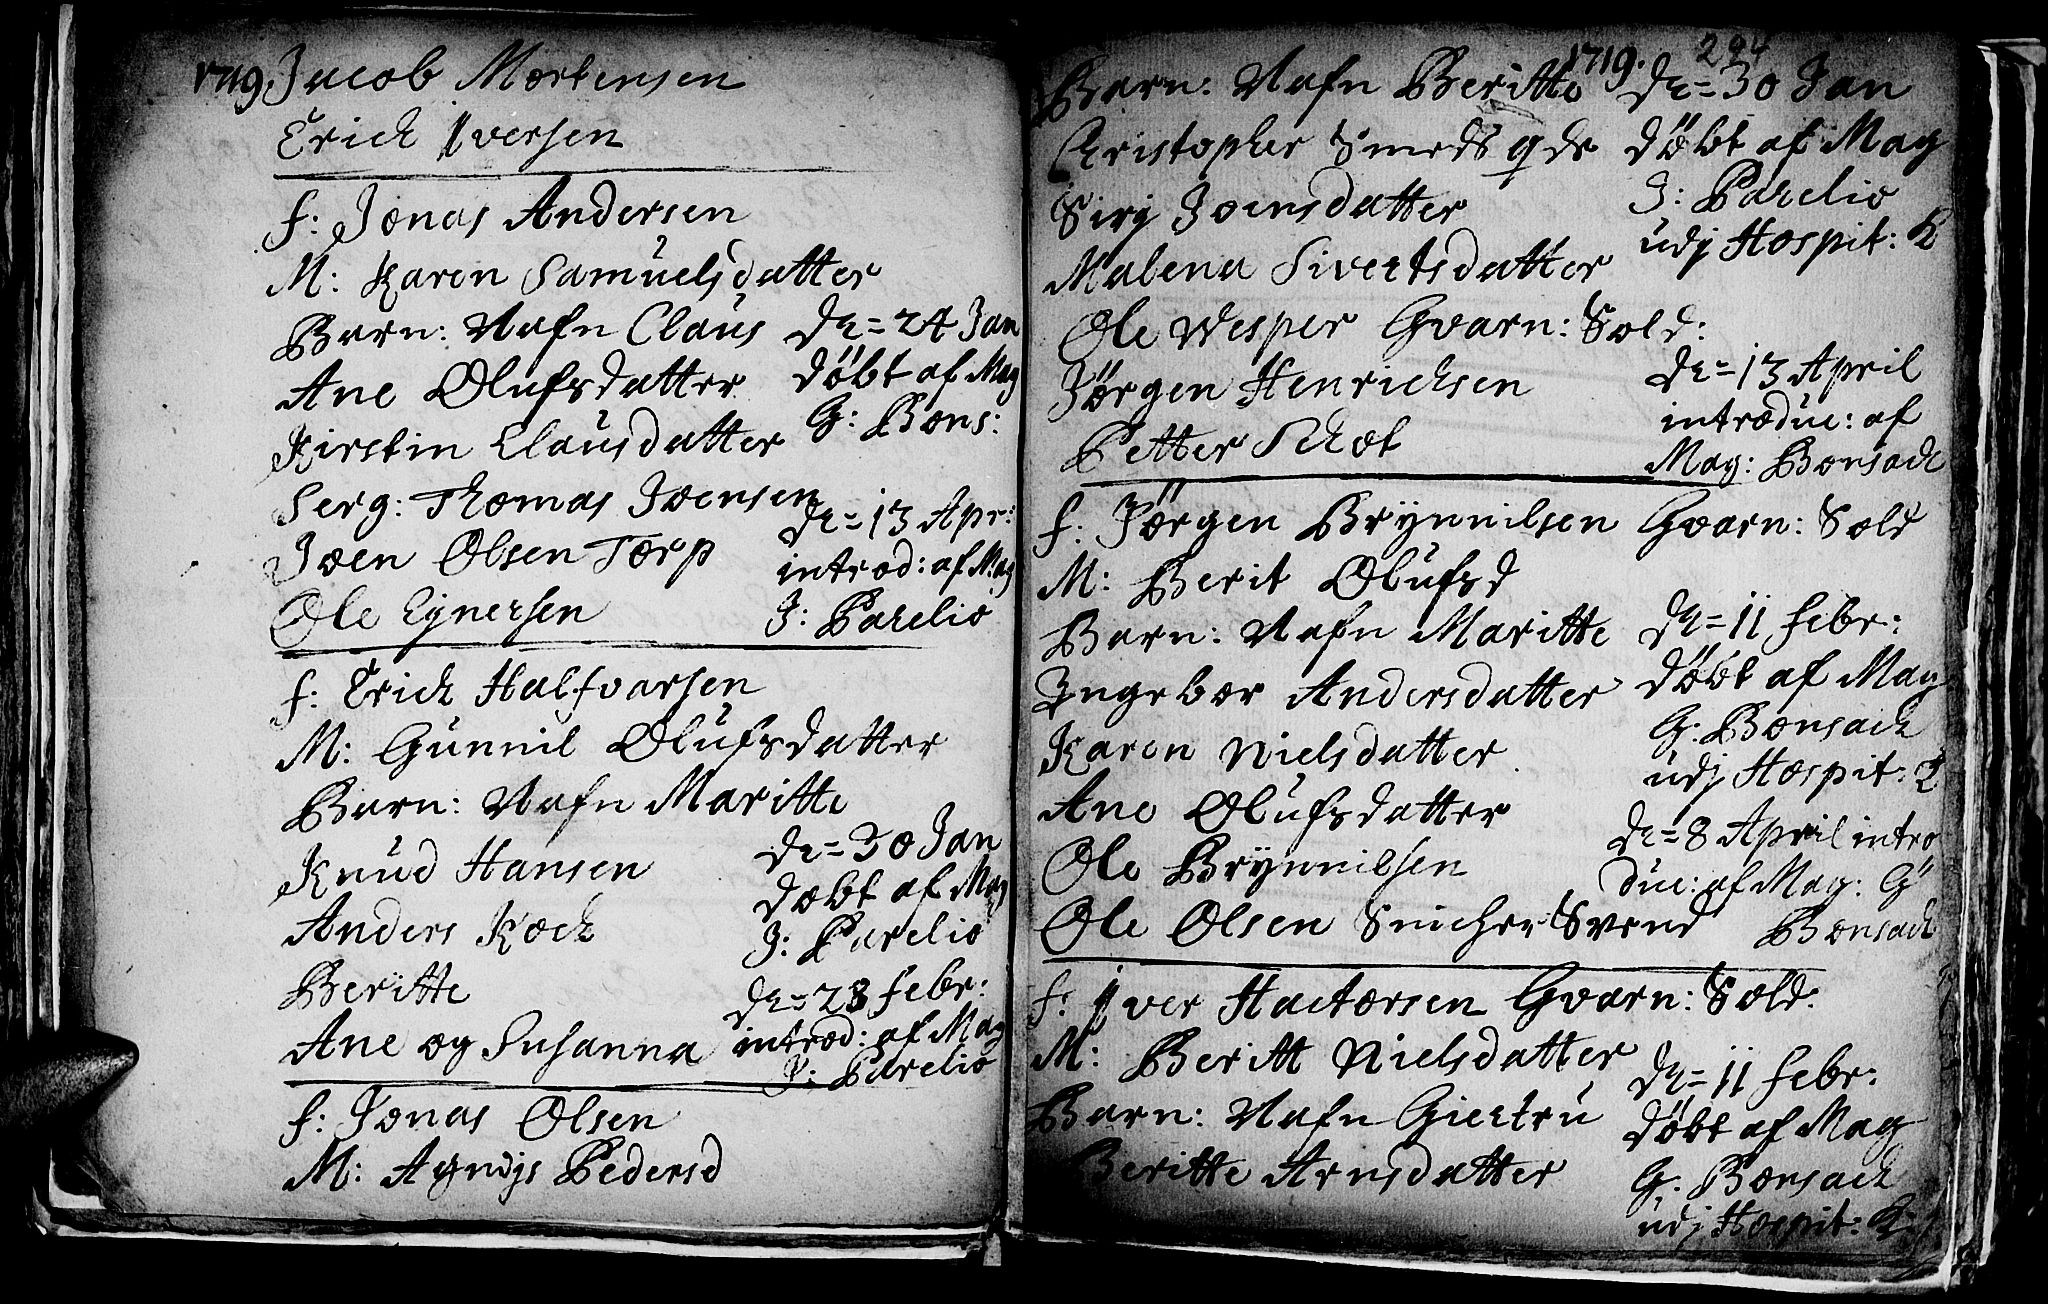 1719. Jacob Mortensen
Erich Iversen
f: Jonas Andersen
M: Karen Samuelsdatter
Barn: Nafn Claus
Ane Olufsdatter
Kirstin Clausdatter
Serg: Thomas Joensen
Joen Olsen Torp
Ole Eynersen
de= 24 Jan
döbt af Mag
G: Bons:
de= 13 Apr:
introd: af Mag
J: Parelio
f: Erich Halfvarsen
M: Gunnil Olufsdatter
Barn: Nafn Maritte
Knud Hansen
Anders Koch
Beritte
Ane og Susanna
de= 30 Jan
dobt af Mag
J: Parelio
de= 28 febr:
introd: af Mag
J: Parelio
f: Jonas Olsen
M: Agnijs Pedersd
1719. 294
Barn: Nafn Beritte
Christopher Smeds qde
Sirj Joensdatter
Malena Sivertsdatter
Ole Vesper Gvarn: Sold:
Jörgen Henrichsen
Petter Schot
de= 30 Jan
döbt af Mag
J: Parelio
udj Hospit: K
de= 13 April
introduc: af
Mag: Bonsach
f: Jörgen Brynnilsen Gvarn: Sold
M: Berit Olufsd
Barn: Nafn Maritte
Ingebor Andersdatter
Karen Nielsdatter
Ane Olufsdatter
Ole Brynnilsen
Ole Olsen Snicher Svend
de= 11 febr:
döbt af Mag
G: Bonsach
udj Hospit: K
de= 8 April intro
duc: af Mag: G
Bonsach
f: Iver Hactorsen Gvarn: Sold:
M: Beritt Nielsdatter
Barn: Nafn Giertru
Beritte Arnsdatter
de= 11 febr:
döbt af Mag
G: Bonsach
udj Hospit: K: